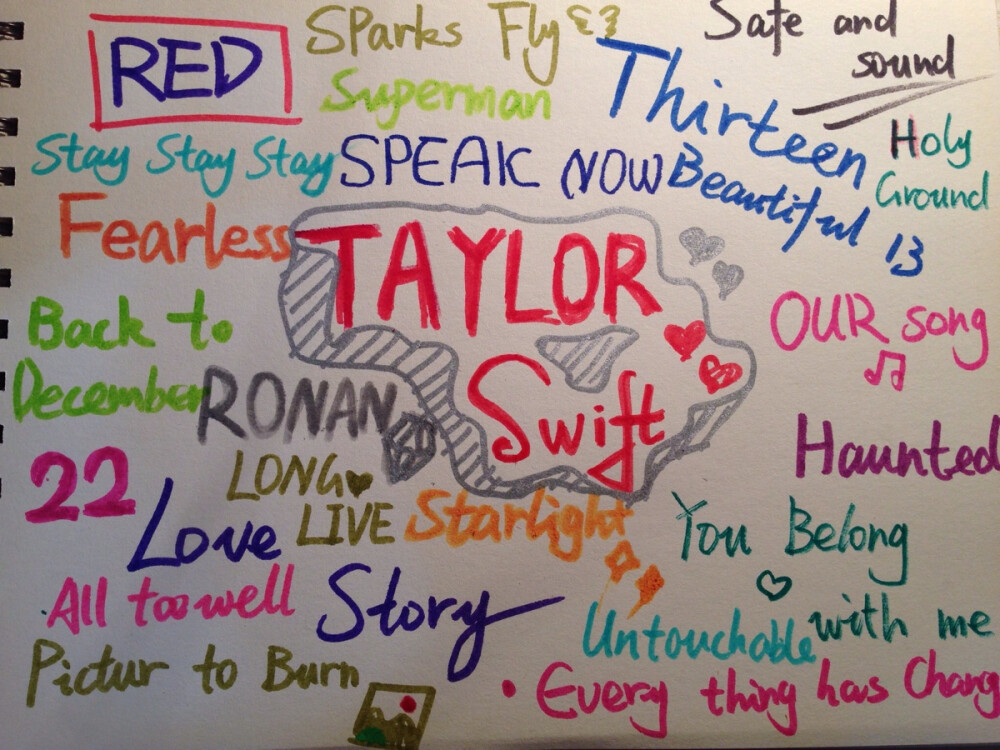 RED
Sparks Fly
Safe and
sound
Superman
Thirteen
Holy
Ground
Stay Stay Stay
SPEAK NOW
Beautiful
13
Fearless
TAYLOR
Swift
Back to
December
OUR song
RONAN
Haunted
22
LONG
LIVE
Starlight
Love
Story
You Belong
with me
All too well
Untouchable
Pictur to Burn
Every thing has Chang